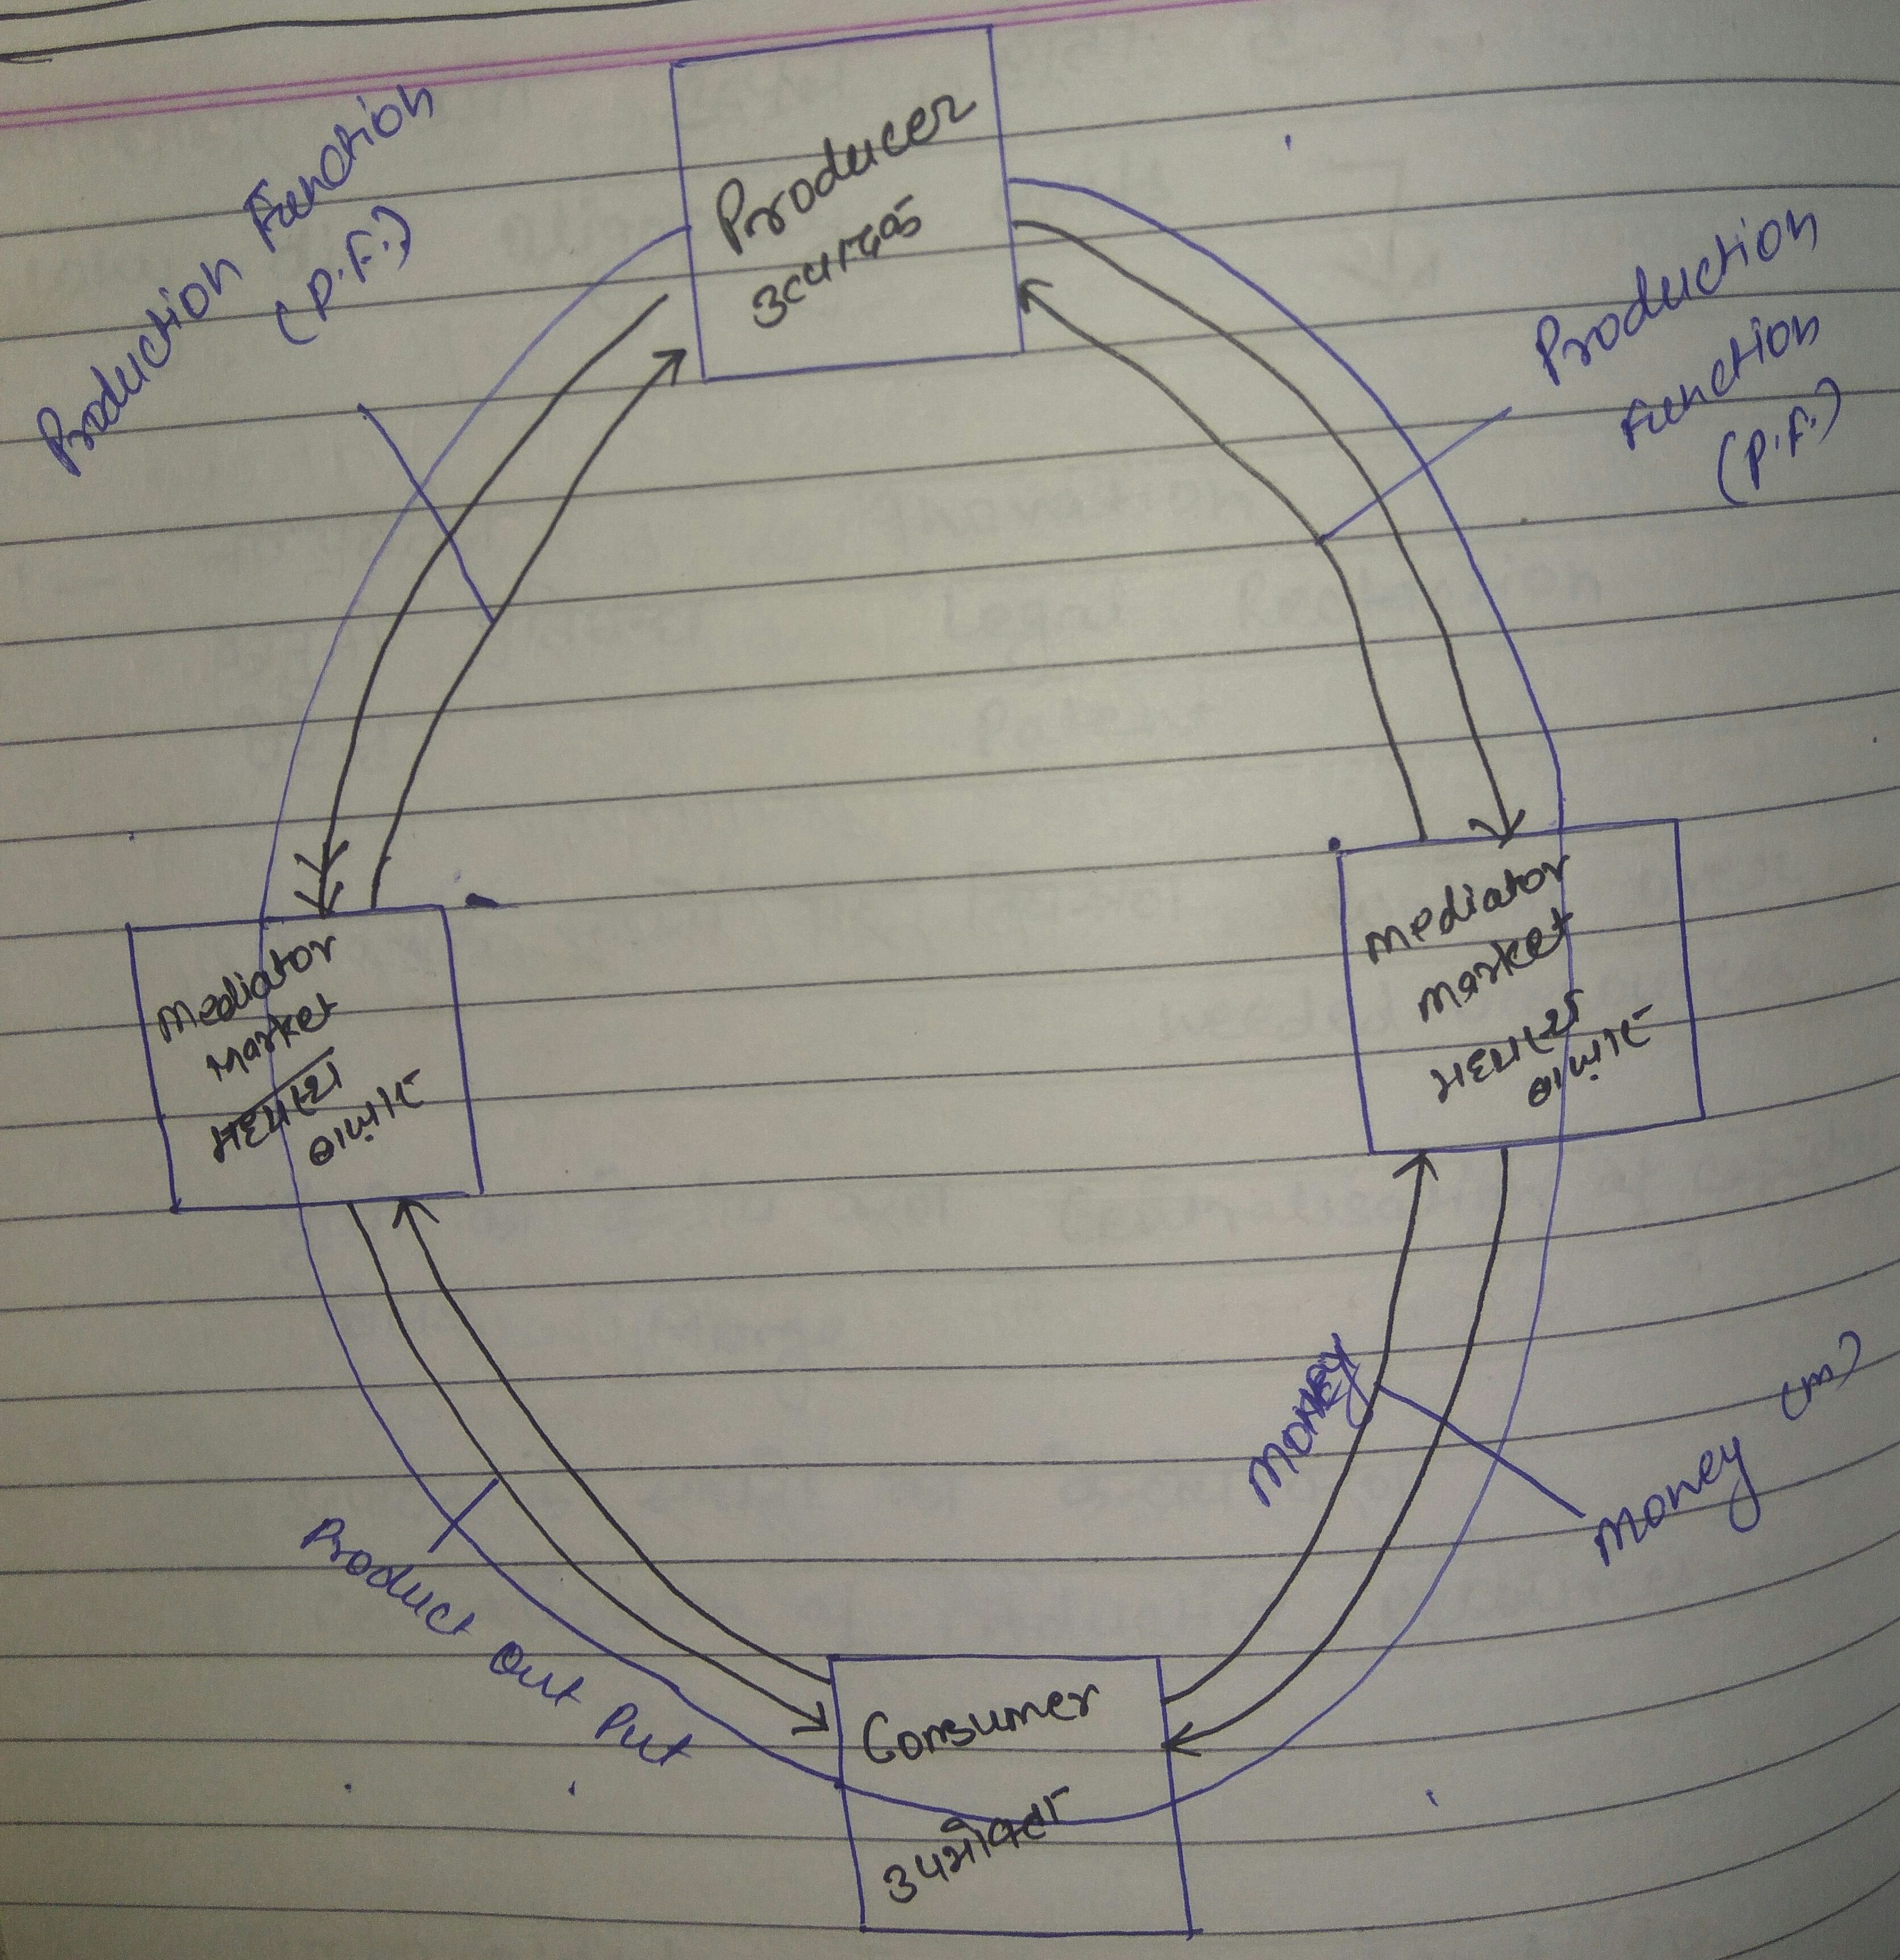 Producer
उत्पादक
Production Function
(P.F.)
Production
Function
(P.F.)
Mediator
Market
मध्यस्थ
बाज़ार
Mediator
Market
मध्यस्थ
बाज़ार
Money
Money (m)
Product Out Put
Consumer
उपभोक्ता